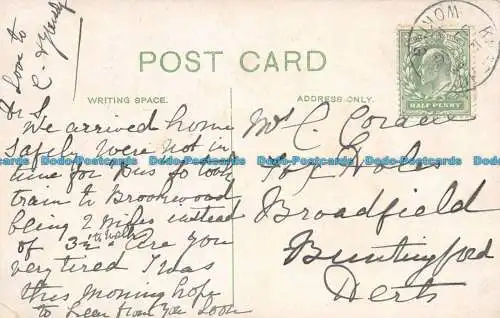 Love to
POST CARD
WRITING SPACE.
ADDRESS ONLY.
HALF PENNY
Dr S
We arrived home
safely were not in
time for Bus so took
train to Brookwood
being 2 miles instead
of 3½ walk Are you
very tired I was
this morning hope
to hear from you soon
Mr C.
Broadfield
Buntingford
Herts
Dodo-Postcards Dodo-Postcards Dodo-Postcards Dodo-Postcards Dodo-Postcards